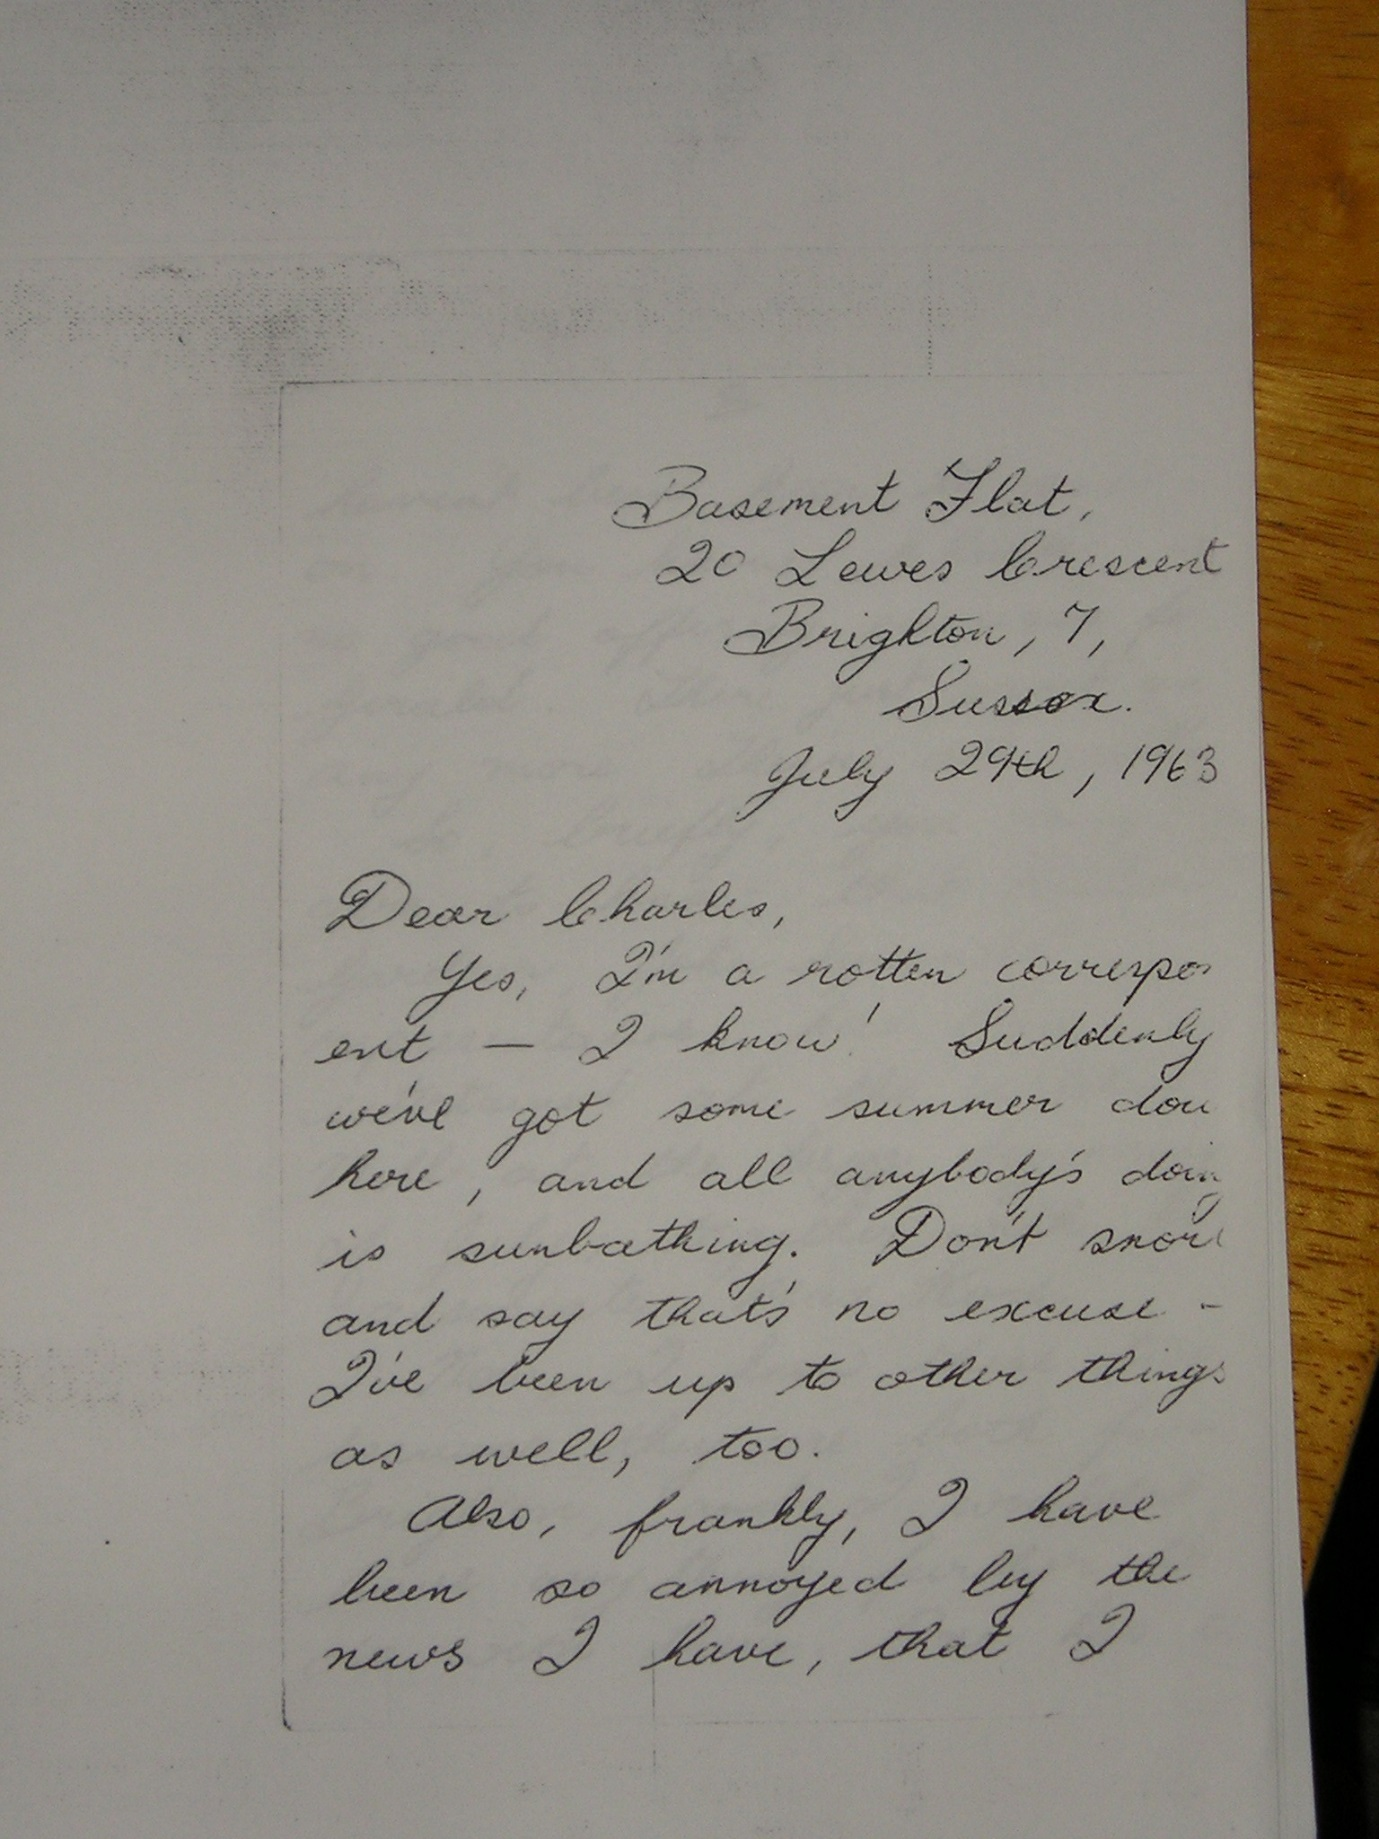 Basement Flat,
20 Lewes Crescent
Brighton, 7,
Sussex.
July 29th, 1963
Dear Charles,
Yes, I'm a rotten correspon
ent — I know! Suddenly
we've got some summer dow
here, and all anybody's doing
is sunbathing. Don't snort
and say that's no excuse -
I've been up to other things
as well, too.
Also, frankly, I have
been so annoyed by the
news I have, that I